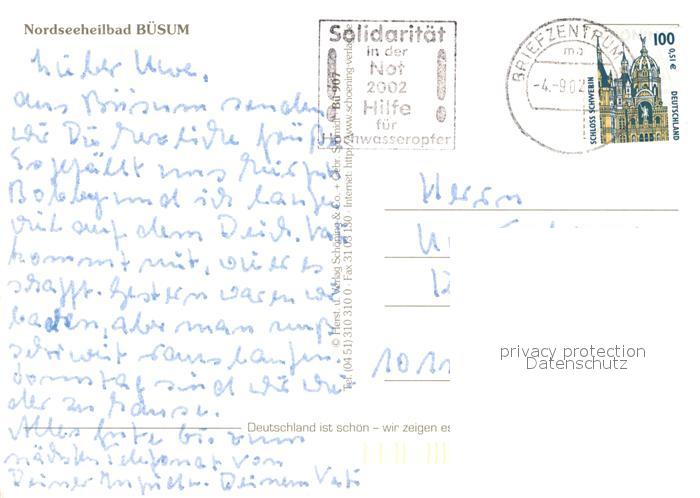 Nordseeheilbad BÜSUM
Lieber Uwe,
aus Büsum senden
wir Dir herzliche Grüße
Es gefällt uns hier
Bobby und ich laufen
viel auf dem Deich. Va
kommt mit, wie er es
schafft. Gestern waren wir
baden, aber man muß
sehr weit raus laufen.
Donnstag sind wir wie
der zu Hause.
Alles Gute bis zum
nächsten Telefonat von
Deiner Deinem Vati
© Herst. u. Verlag Schöning & Co. + Gebr. Schmidt · Bü 907
Tel. (04 51) 310 310 0 · Fax 31 03 130 · Internet: http://www.schoening-verlag
Solidarität
in der
Not
2002
Hilfe
für
Hochwasseropfer
BRIEFZENTRUM
-4.-9.02
100
0,51€
SCHLOSS SCHWERIN
DEUTSCHLAND
Herrn
1011
privacy protection
Datenschutz
Deutschland ist schön – wir zeigen es